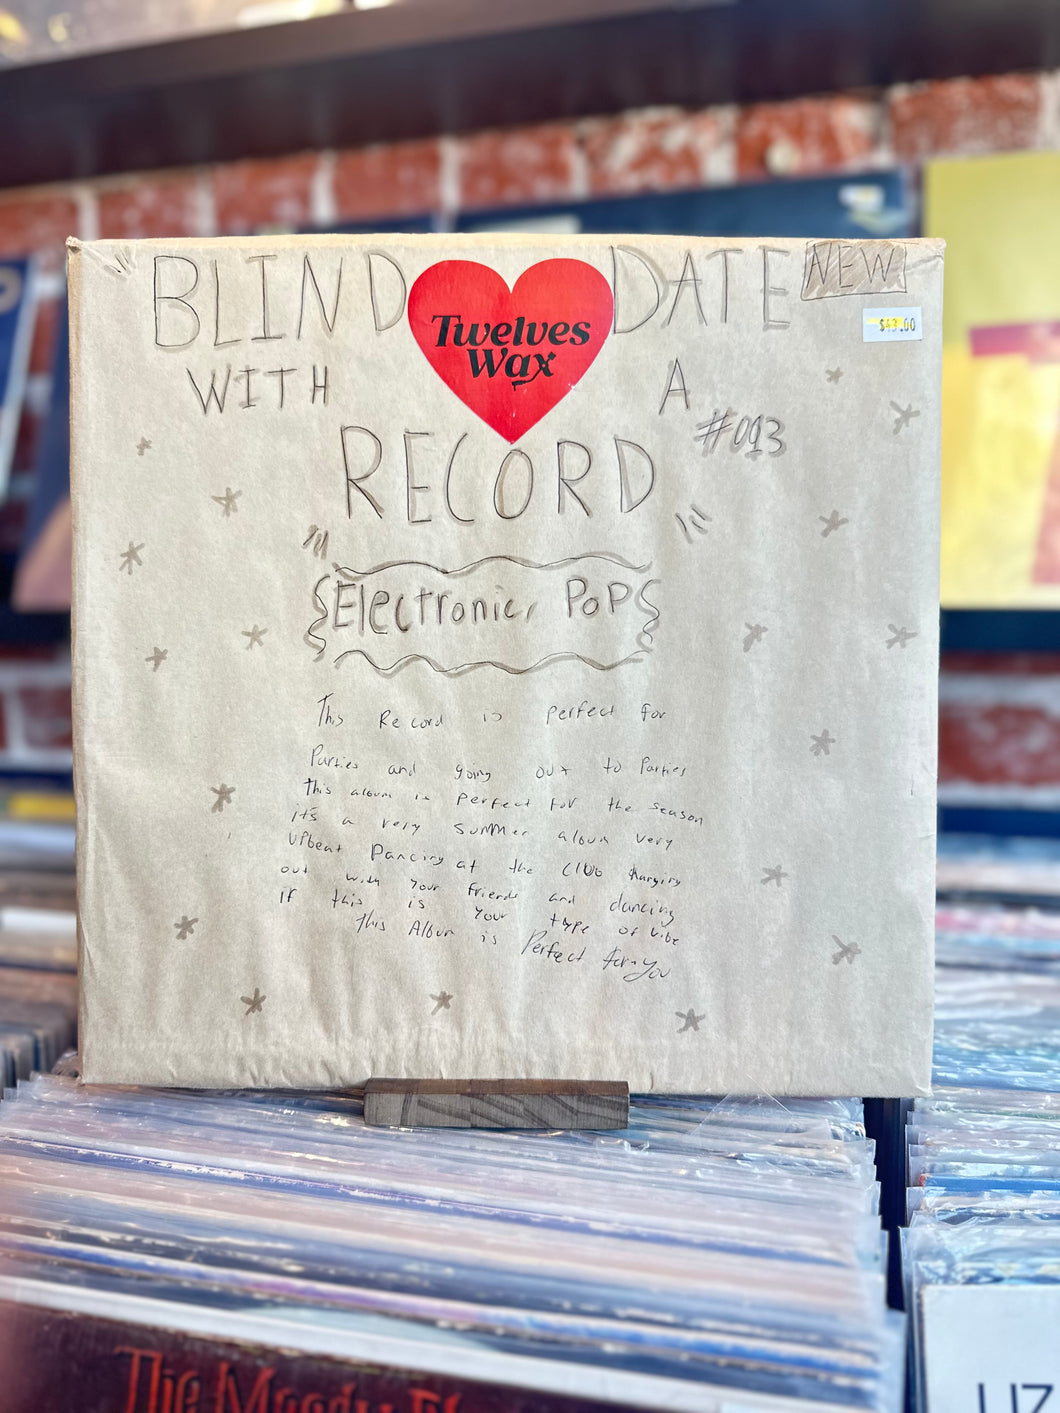 BLIND DATE NEW
Twelves
Wax
$43.00
WITH A
#093
RECORD
Electronic, Pop
This Record is perfect for
Parties and going out to Parties
This album is perfect for the season
it's a very summer album very
upbeat Dancing at the club hanging
out with your friends and dancing
if this is your type of vibe
This Album is Perfect for you
The Moody